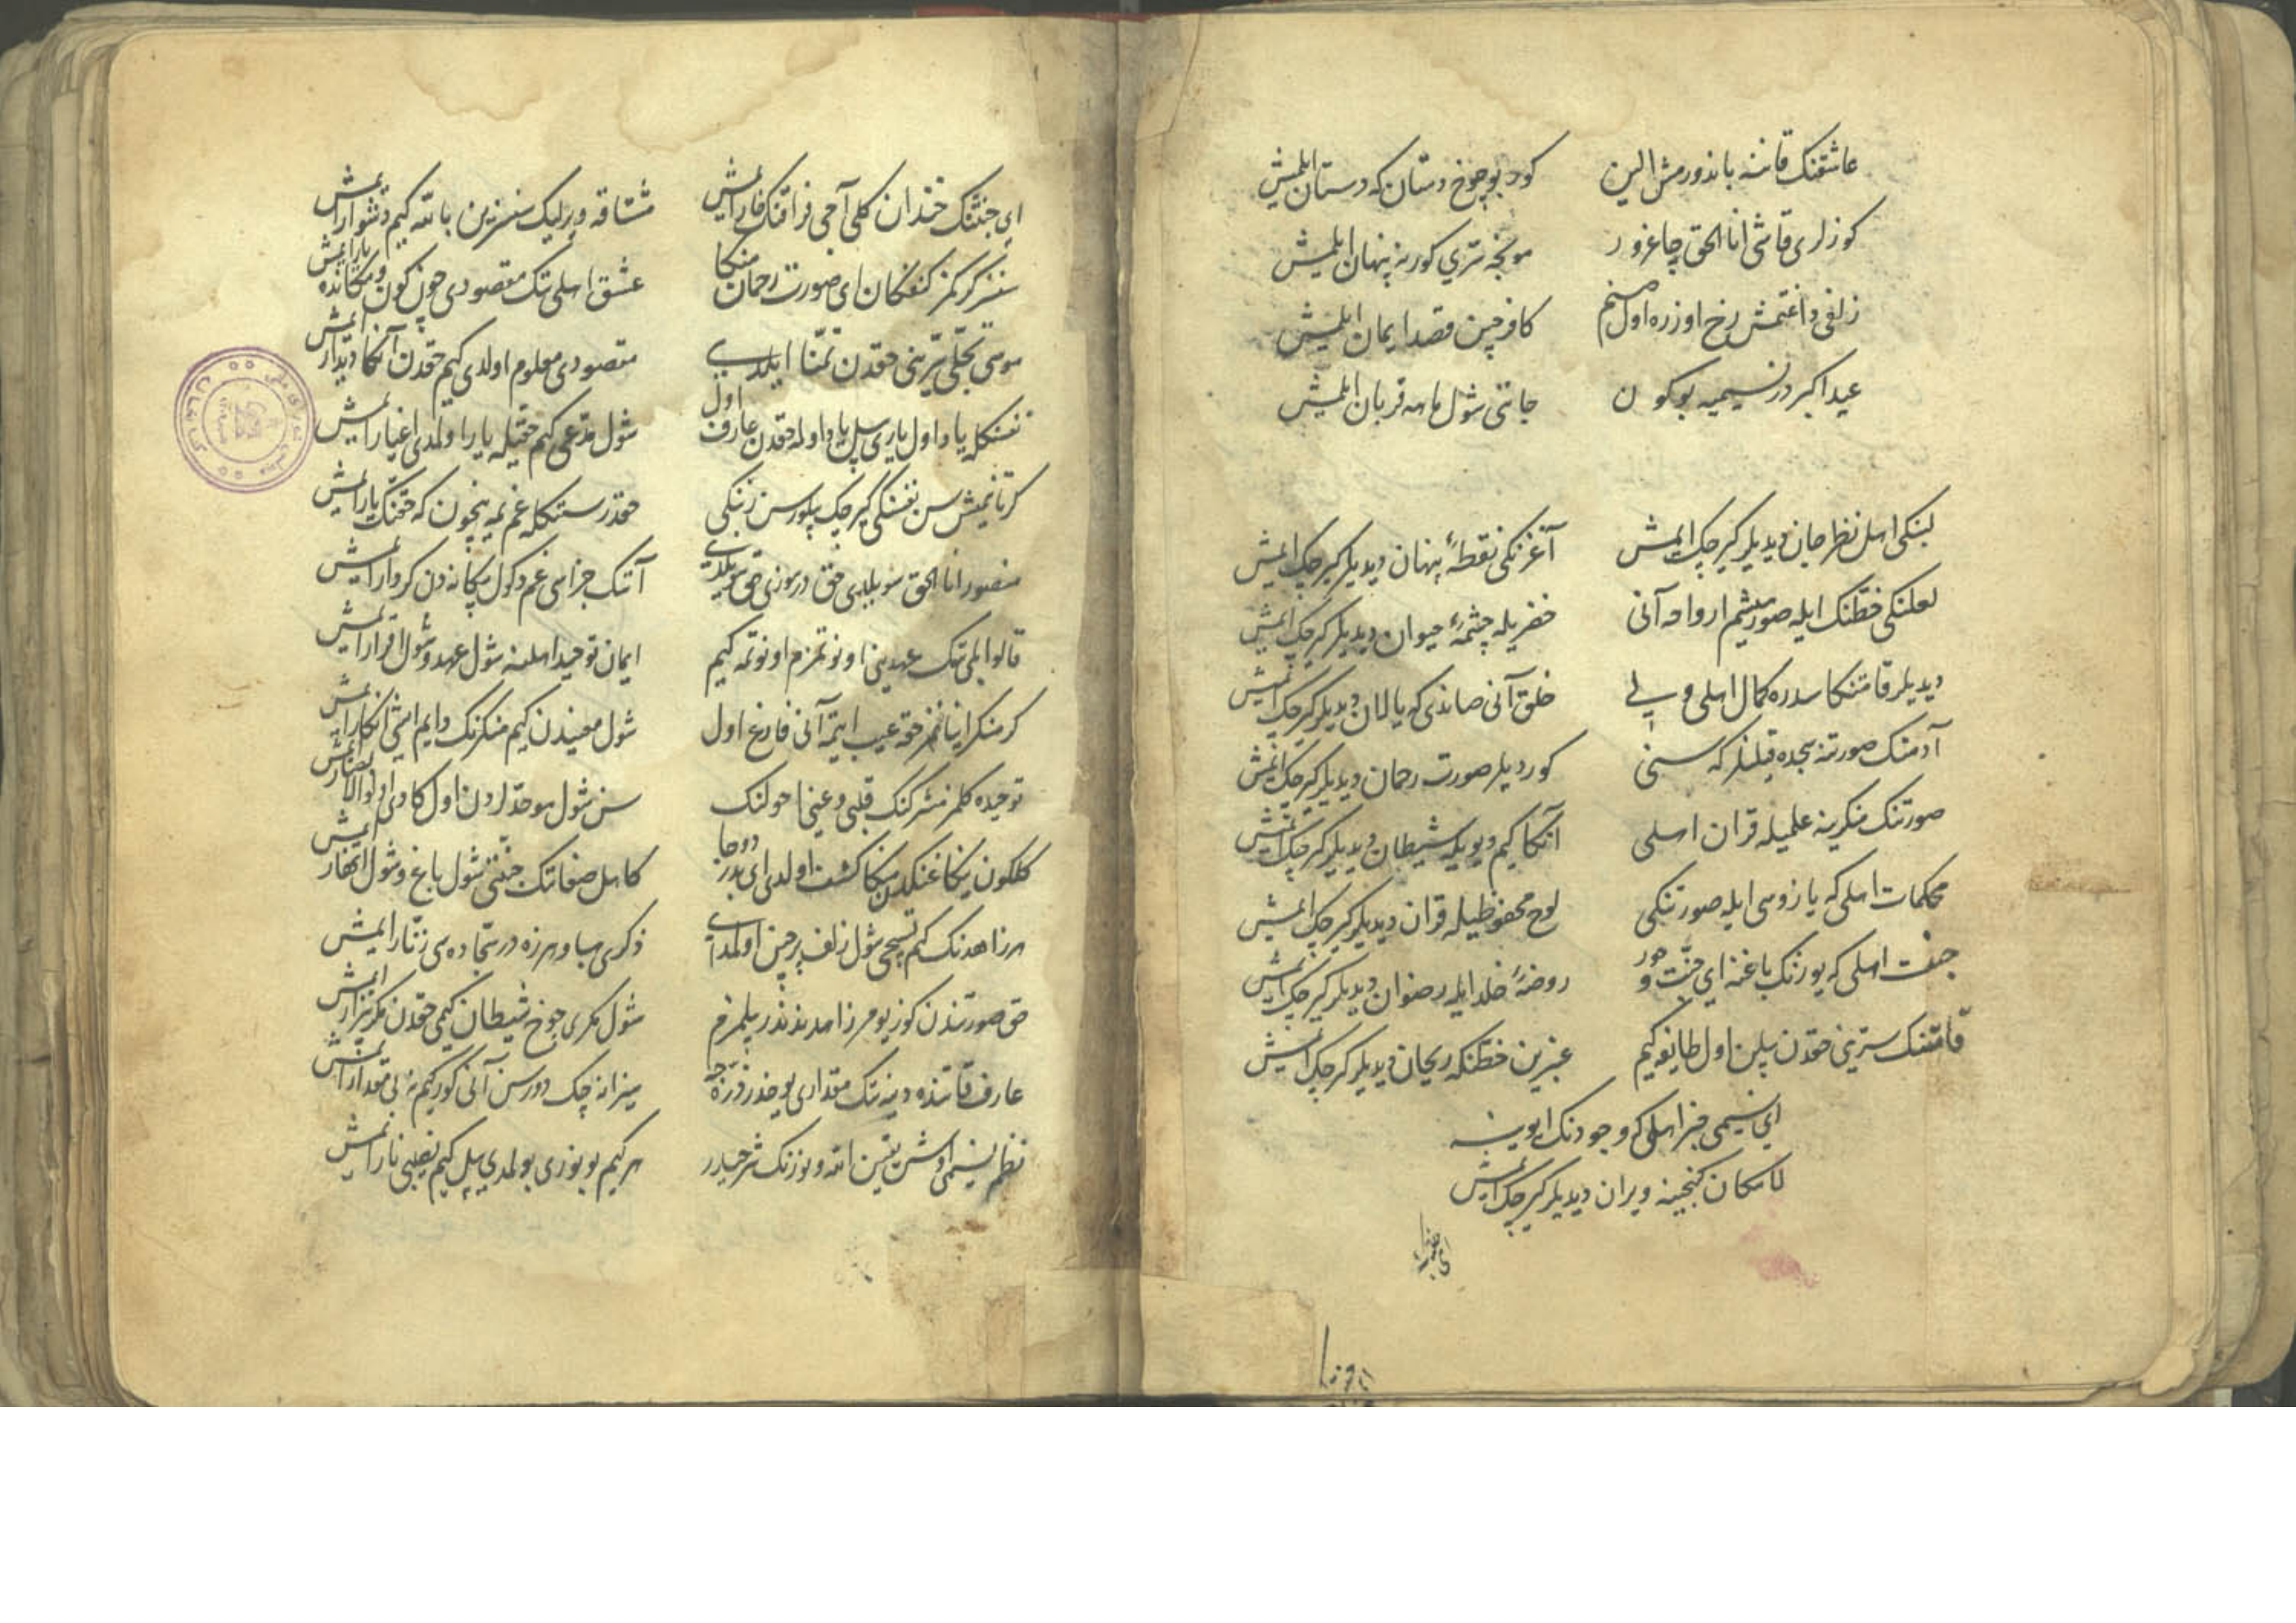 عاشقنک قاننه باندورمش الین
کور بو چوخ دستان که دستان ایلمیش
کوزلری قاشی انا الحق چاغرور
مونجه سری کورنه پنهان ایلمیش
زلفی داغتمش رخ اوزره اول صنم
کافر چین قصد ایمان ایلمیش
عید اکبر در نسیمیه بو کون
جاننی شول ماهه قربان ایلمیش
لبنکی اهل نظر جان دیدیلر کیرچک ایمش
آغزنکی نقطهٔ پنهان دیدیلر کیرچک ایمش
لعلنکی خطنک ایله صورمیشم ارواحه آنی
خضریله چشمهٔ حیوان دیدیلر کیرچک ایمش
دیدیلر قامتنکا سدره کمال اهلی ولی
خلق آنی صاندی که یالان دیدیلر کیرچک ایمش
آدمنک صورتنه سجده قیلنلر که سنی
کوردیلر صورت رحمان دیدیلر کیرچک ایمش
صورتنک منکرینه علمیله قران اهلی
آنکا کیم دیو یله شیطان دیدیلر کیرچک ایمش
محکمات اهلی که یازوسی ایله صورتنکی
لوح محفوظیله قران دیدیلر کیرچک ایمش
جنت اهلی که یوزنک باغنه ای جنت و حور
روضهٔ خلد ایله رضوان دیدیلر کیرچک ایمش
قامتنک سترینی حقدن بیلن اول طایفه کیم
عنبرین خطنکه ریحان دیدیلر کیرچک ایمش
ای نسیمی خبر اهلی که وجودنک اوینه
لامکان کنجینه ویران دیدیلر کیرچک ایمش
ای جنتنک خندان کلی آجی فراقنک خار ایمش
مشتاقه دیرلیک سنسزین بالله کیم دشوار ایمش
سنسز کرکمز کنفکان ای صورت رحمان منکا
عشق اهلی تک مقصودی چون کون و مکانده یار ایمش
موسی تجلی سرینی حقدن تمنا ایلدی
مقصودی معلوم اولدی کیم حقدن آنکا دیدار ایمش
نفسنکله یاد اول یاری بیل یاد اولمه حقدن عارف اول
شول مدعی کیم حقیله یار اولمدی اغیار ایمش
کر تانیمیش سن نفسنکی کیرچک بیلورسن زنکی
حقدر سنکله غم نمه ینچون که حقنک یار ایمش
منصور انا الحق سویلدی حق در سوزی حق سویلدی
آنک جزاسی غم دکول بیکانه دن کر دار ایمش
قالوا بلی تک عهدینی اونوتمزم اونوتمه کیم
ایمان توحید اهلنه شول عهد و شول اقرار ایمش
کر منکر اینانمز حقه عیب ایتمه آنی فارغ اول
شول معنیدن کیم منکرنک دایم ایشی انکار ایمش
توحیده کلمز مشرکنک قلبی و عینی احولنک
سن شول موحدلردن اول کا دی اولوالابصار ایمش
کلکون ینکاغنکدن منکا کشف اولدی ای بدر دوجا
کامل صفاتک جنتی شول باغ و شول انهار ایمش
هر زاهدنک کیم تسبیحی شول زلف پرچین اولمدی
ذکری هبا و هرزه در سجاده سی زنار ایمش
حق صورتندن کوز یومر زاهد نه ندر بیلمزم
شول مکری چوخ شیطان کیمی حقدن مکر بیزار ایمش
عارف قاتنده دینه تک مقداری یوخدر ذره جه
میزانه چک دورسن آنی کورکیم نه بی مقدار ایمش
نظم نسیمی اوش یقین الله و یوزنک شرحیدر
هر کیم بو نوری بولمدی بیل کیم نصیبی نار ایمش